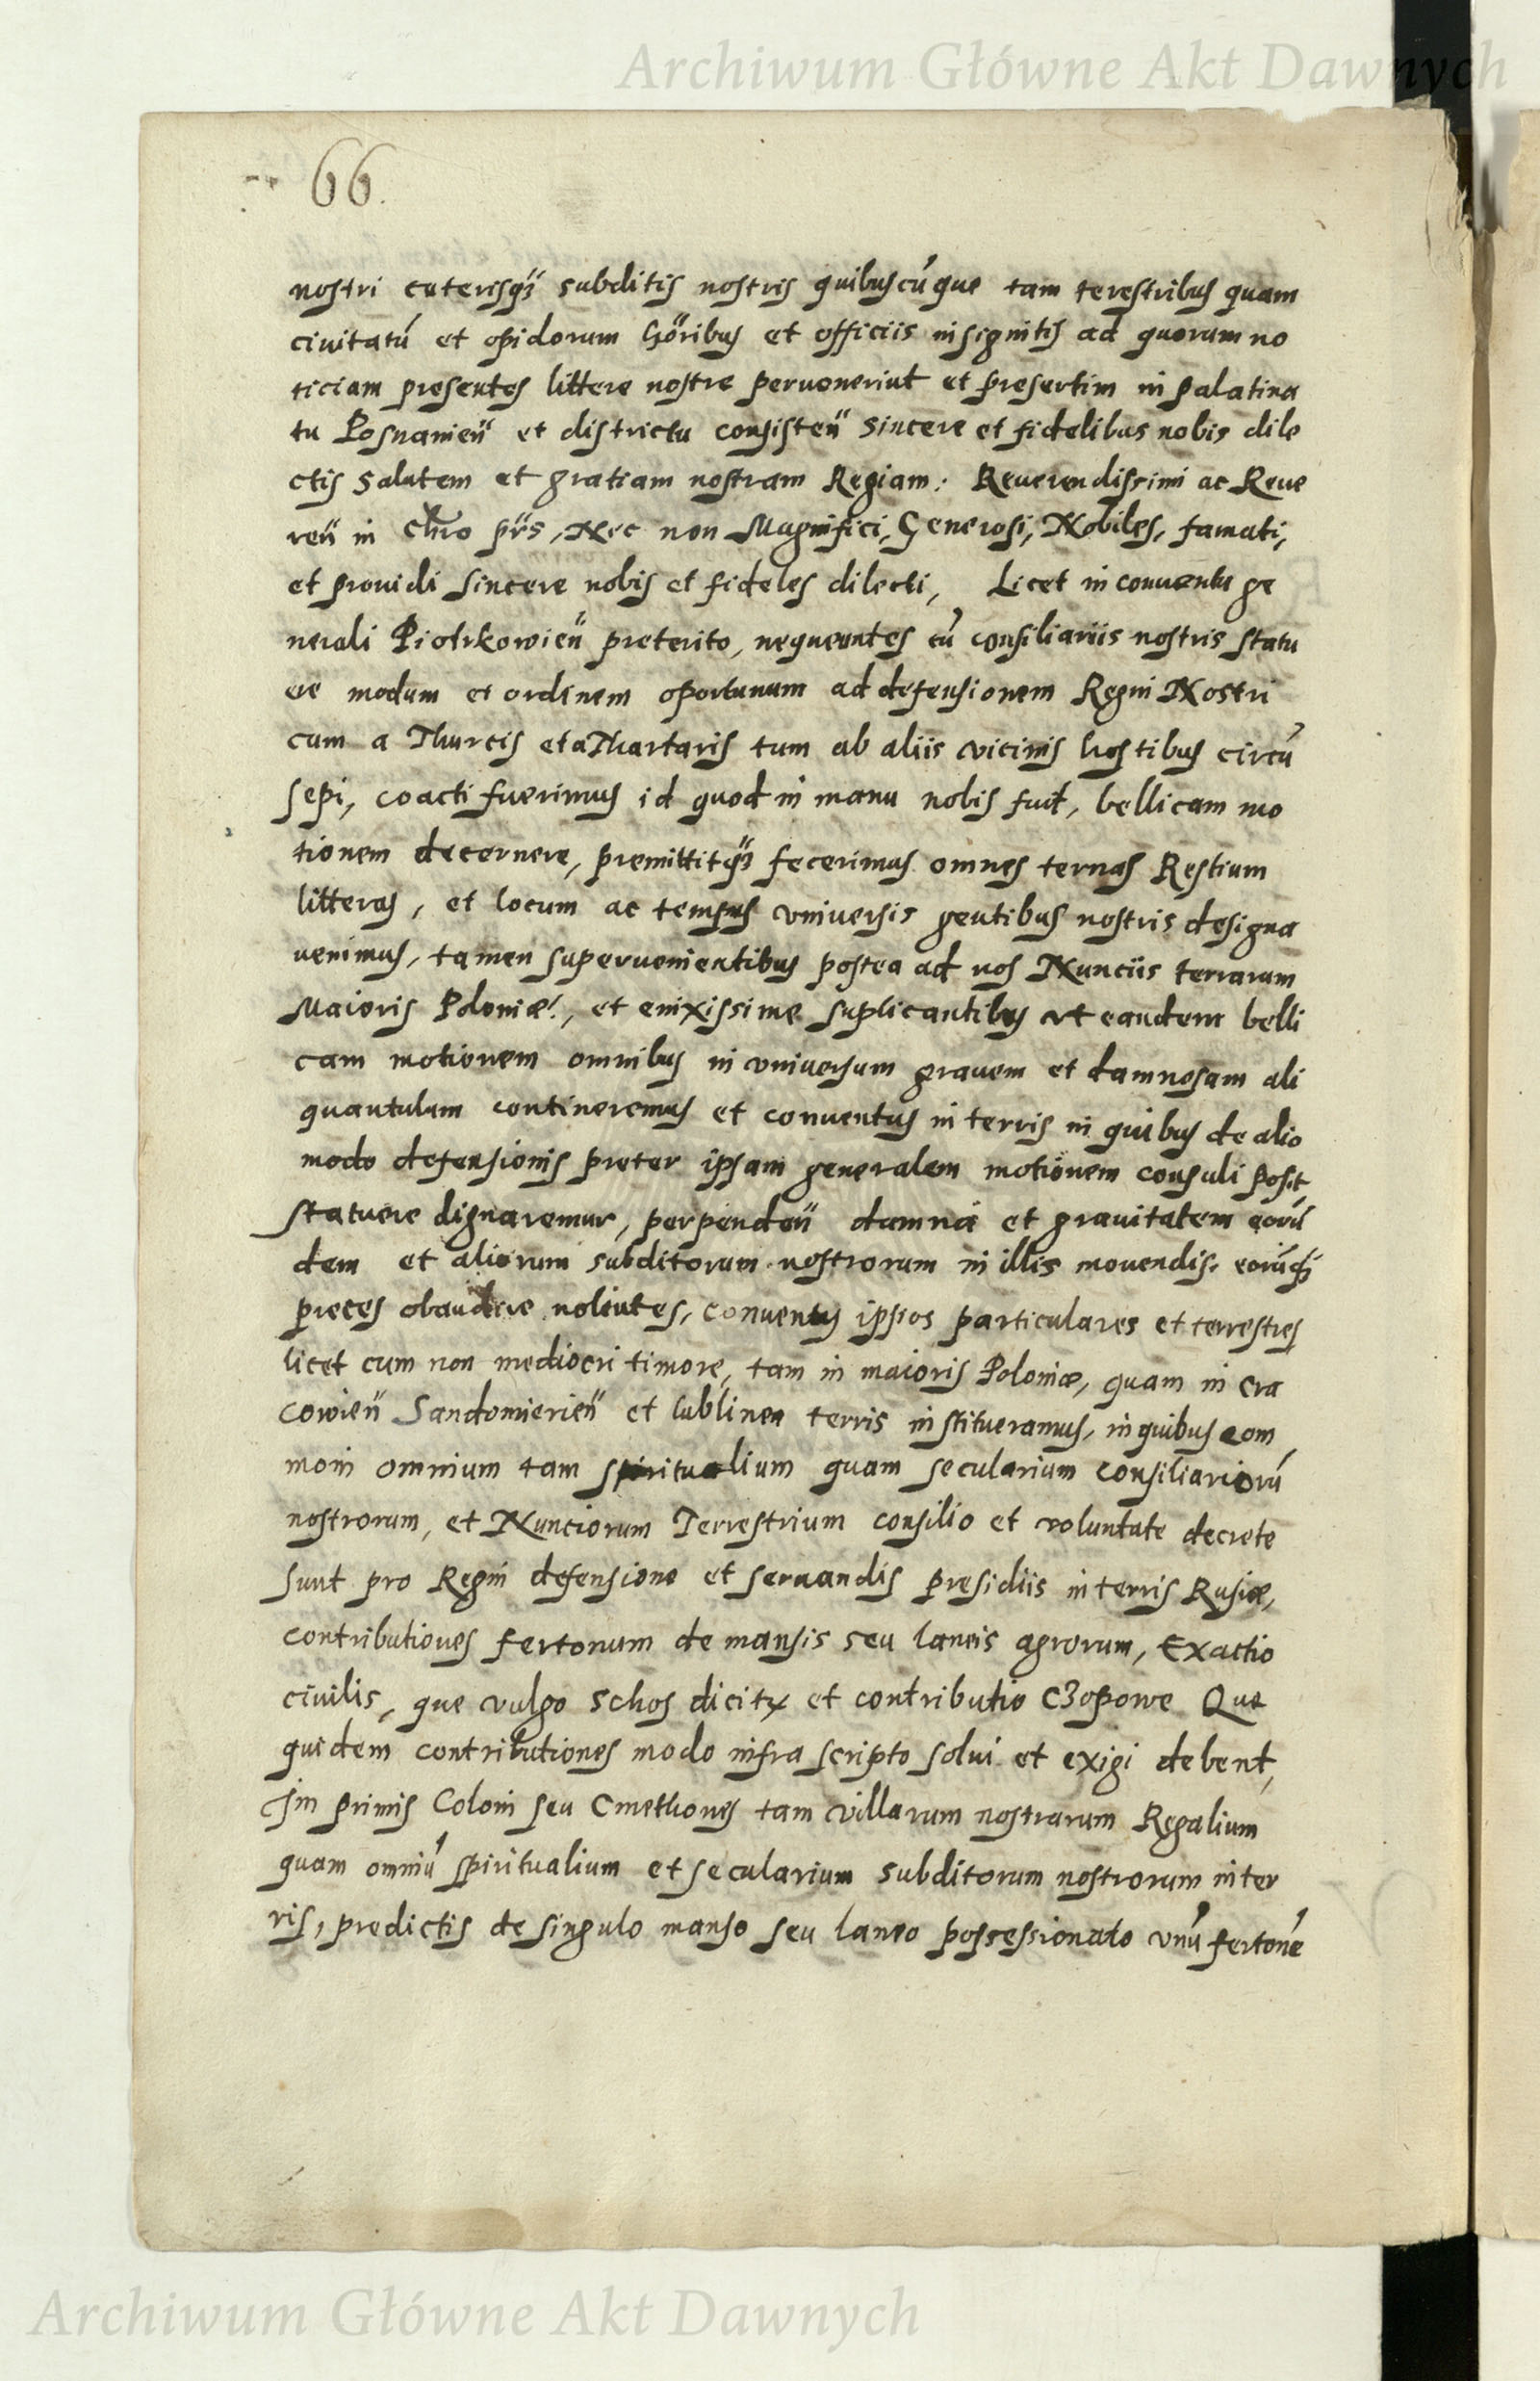 Archiwum Główne Akt Dawnych
66.
nostri ceterisq3 subditis nostris quibuscūque tam terestribus quam
ciuitatū et opidorum hőribus et officiis insignitis ad quorum no
ticiam presentes littere nostre peruenerint et presertim in palatina
tu Posnanień et districtu consisteń sincere et fidelibus nobis dile
ctis salutem et gratiam nostram Regiam: Reuerendissimi ac Reue
reń in Chro prs, Nec non Magnifici, Generosi, Nobiles, famati,
et prouidi sincere nobis et fideles dilecti, Licet in conuentu ge
nerali Piotrkowień preterito, nequeuntes cū consiliariis nostris statu
ere modum et ordinem oportunum ad defensionem Regni Nostri
cum a Thurcis et a Thartaris tum ab aliis vicinis hostibus circū
sepi, coacti fuerimus id quod in manu nobis fuit, bellicam mo
tionem decernere, premittitq3 fecerimus omnes ternas Restium
litteras, et locum ac tempus vniuersis gentibus nostris designa
uerimus, tamen superuenientibus postea ad nos Nunciis terrarum
Maioris Poloniæ, et enixissime suplicantibus vt eandem belli
cam motionem omnibus in vniuersum grauem et damnosam ali
quantulum contineremus et conuentus in terris in quibus de alio
modo defensionis preter ipsam generalem motionem consuli posit
statuere dignaremur, perpendeń damna et grauitatem eorū
dem et aliorum subditorum nostrorum in illis mouendis. eorūq3
preces obaudire nolintes, conuentus ippos particulares et terrestres
licet cum non mediocri timore, tam in maioris Poloniæ, quam in Cra
cowień Sandomierień et lublinen terris institueramus, in quibus com
moni omnium tam spiritualium quam secularium consiliariorū
nostrorum, et Nunciorum Terrestrium consilio et voluntate decrete
sunt pro Regni defensione et seruandis presidiis in terris Rusiæ,
contributiones fertonum de mansis seu laneis agrorum, Exactio
ciuilis, que vulgo schos dicitr et contributio C3opowe Que
quidem contributiones modo infra scripto solui et exigi debent,
In primis Coloni seu Cmethones tam villarum nostrarum Regalium
quam omniū spiritualium et secularium subditorum nostrorum in ter
ris, predictis de singulo manso seu laneo possessionato vnū fertonē
Archiwum Główne Akt Dawnych